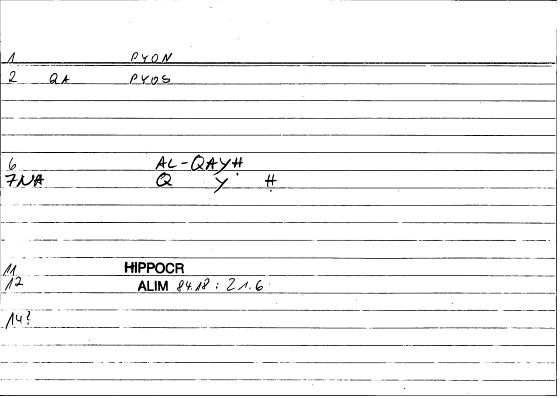 1 PYON
2 QA PYOS
6 AL-QAYḤ
7NA Q Y Ḥ
11 HIPPOCR
12 ALIM 84.18 : 21.6
14?